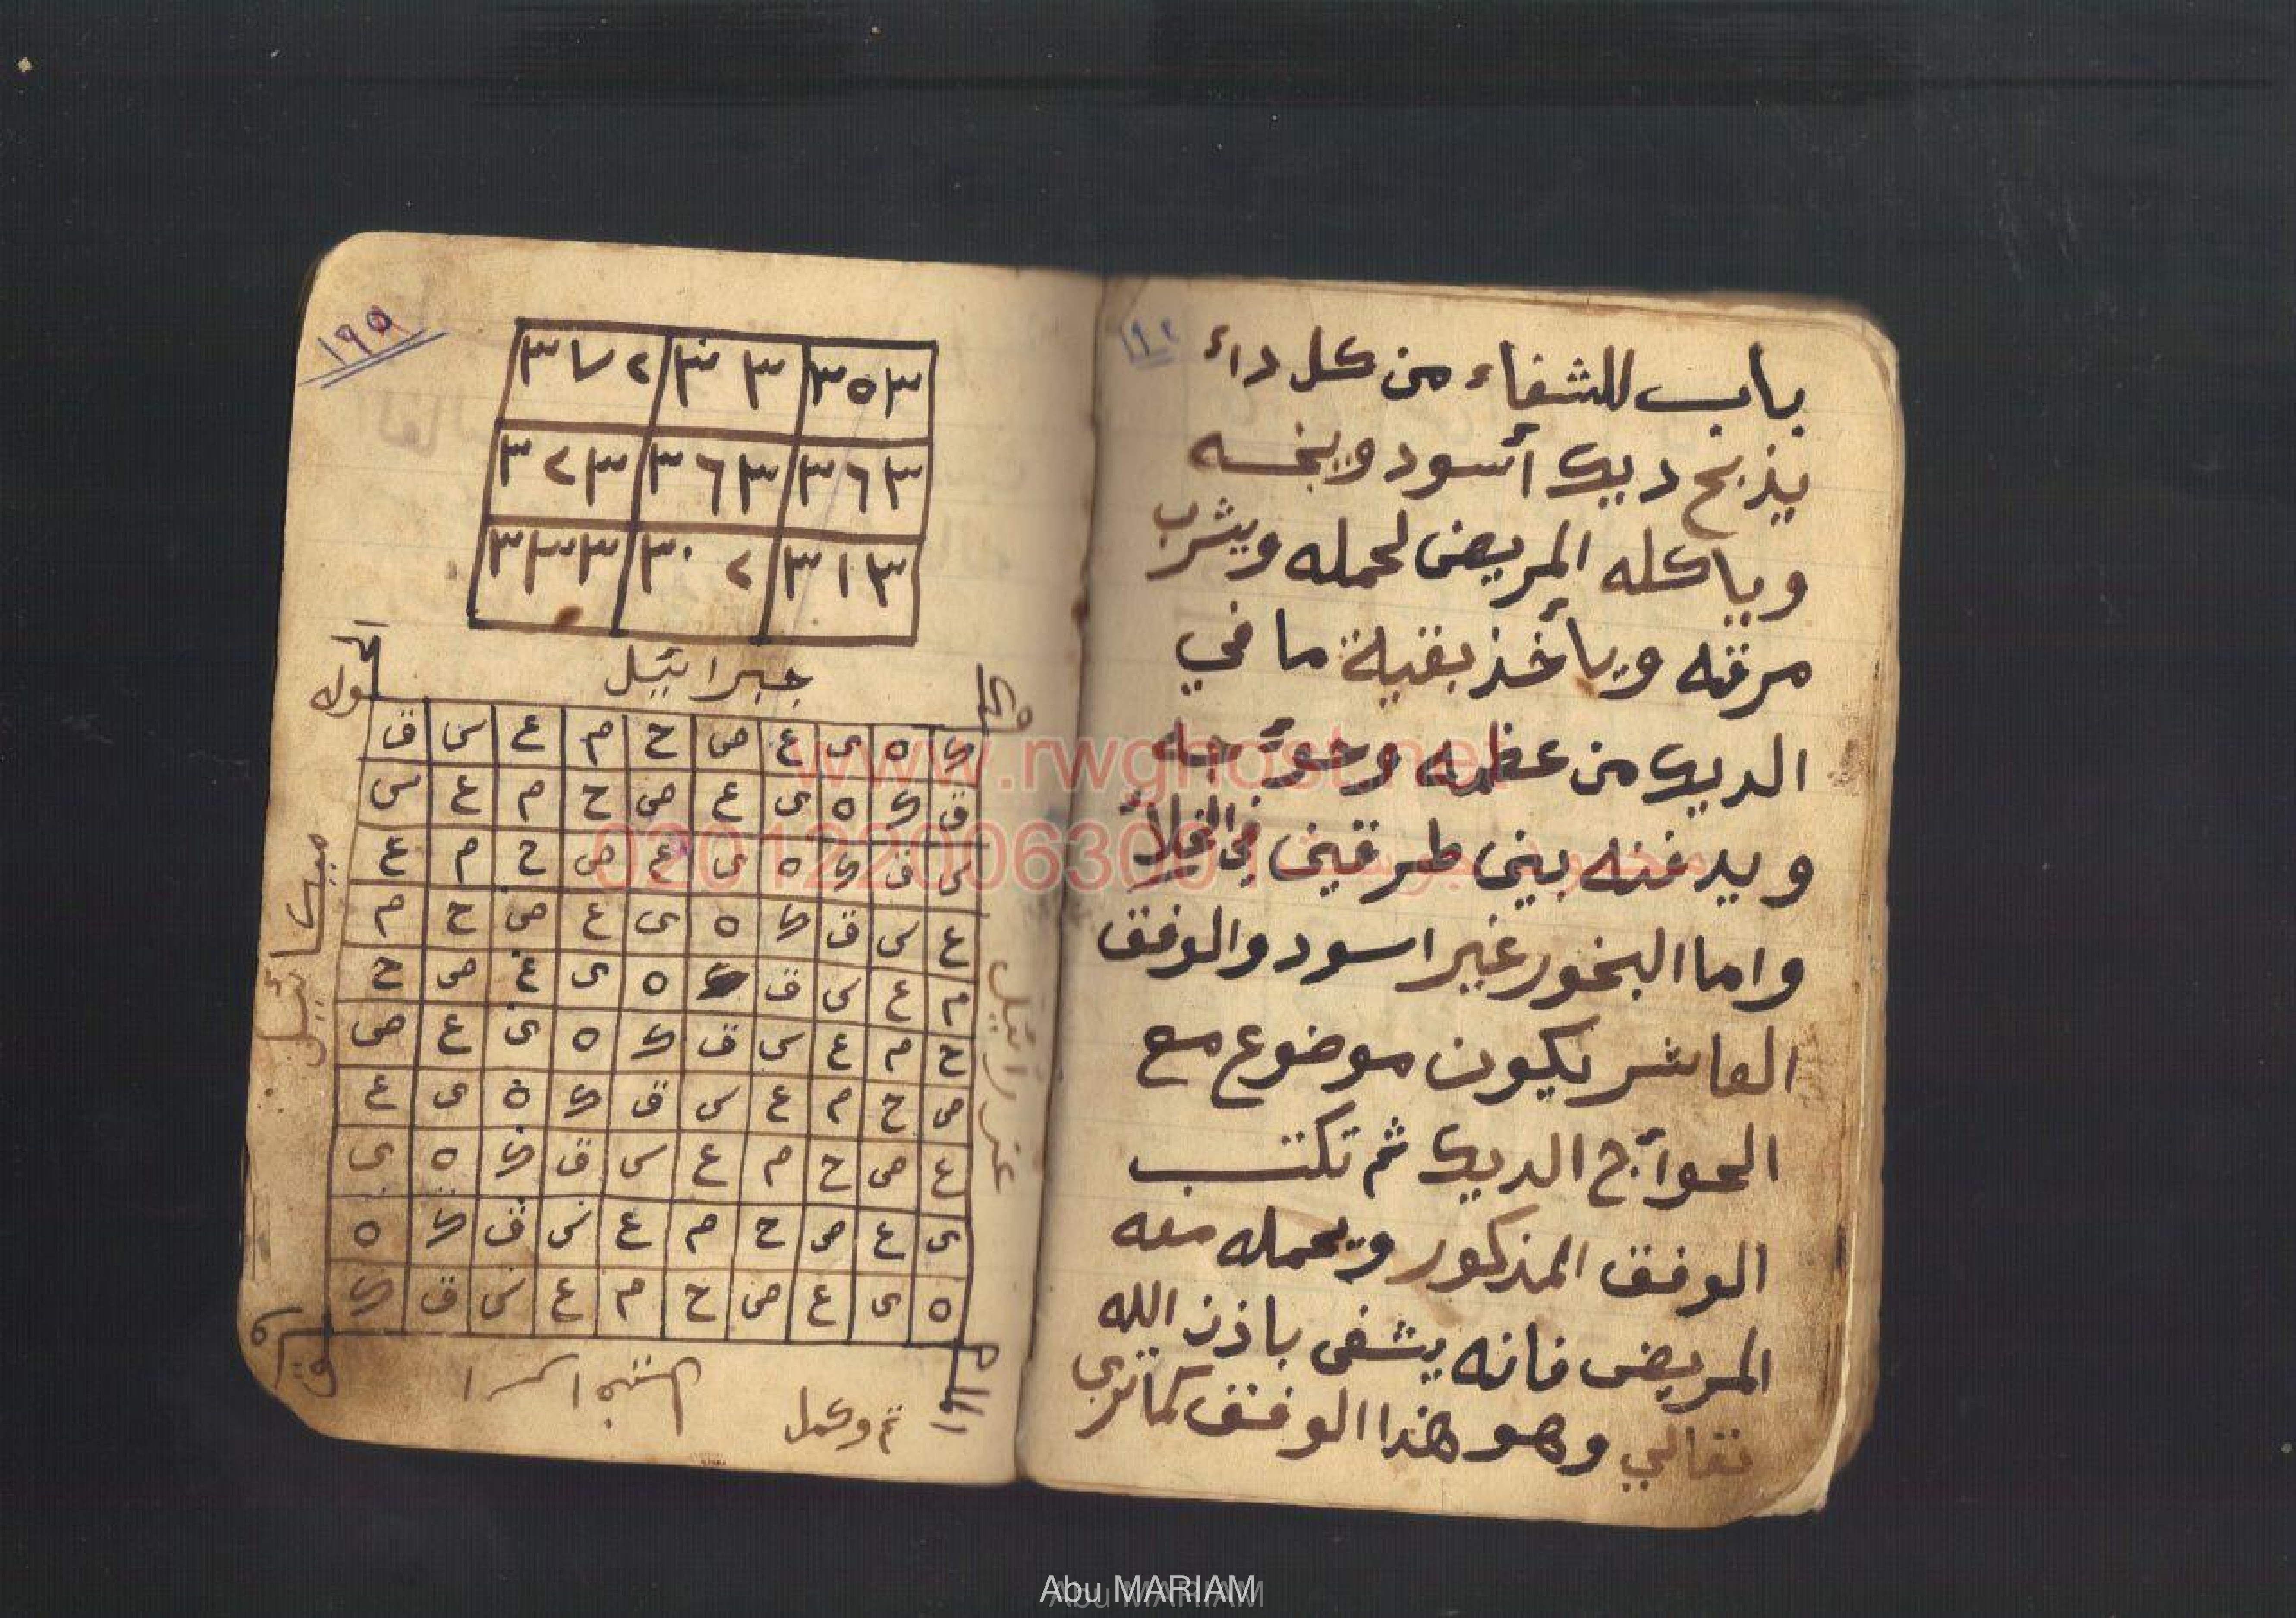 باب للشفاء من كل داء
يذبح ديك أسود ويخسه
وياكله المريض لحمله ويشرب
مرقته ويأخذ بقية ما في
الديك من عظمه وحوئجه
ويدفنه بين طرقين في الخلاء
واما البخور غير اسود والوفق
العاشر يكون موضوع مع
الحوائج الديك ثم تكتب
الوفق المذكور ويحمله معه
المريض فانه يشفى باذن الله
تعالي وهو هذا الوفق كما ترى
١٩٥
٣٧٢ ٣٠٣ ٣٥٣
٣٢٣ ٣٦٣ ٣٦٣
٣٣٣ ٣٠٢ ٣١٣
جبرائيل
قوله
ك ه ى ع ص ح م ع س ق
ق ك ه ى ع ص ح م ع س
س ق ك ه ى ع ص ح م ع
ع س ق ك ه ى ع ص ح م
م ع س ق ك ه ى ع ص ح
ح م ع س ق ك ه ى ع ص
ص ح م ع س ق ك ه ى ع
ع ص ح م ع س ق ك ه ى
ى ع ص ح م ع س ق ك ه
ه ى ع ص ح م ع س ق ك
ميكائيل
عزرائيل
تم وكمل
www.rwghost.net
0201220063090
Abu MARIAM